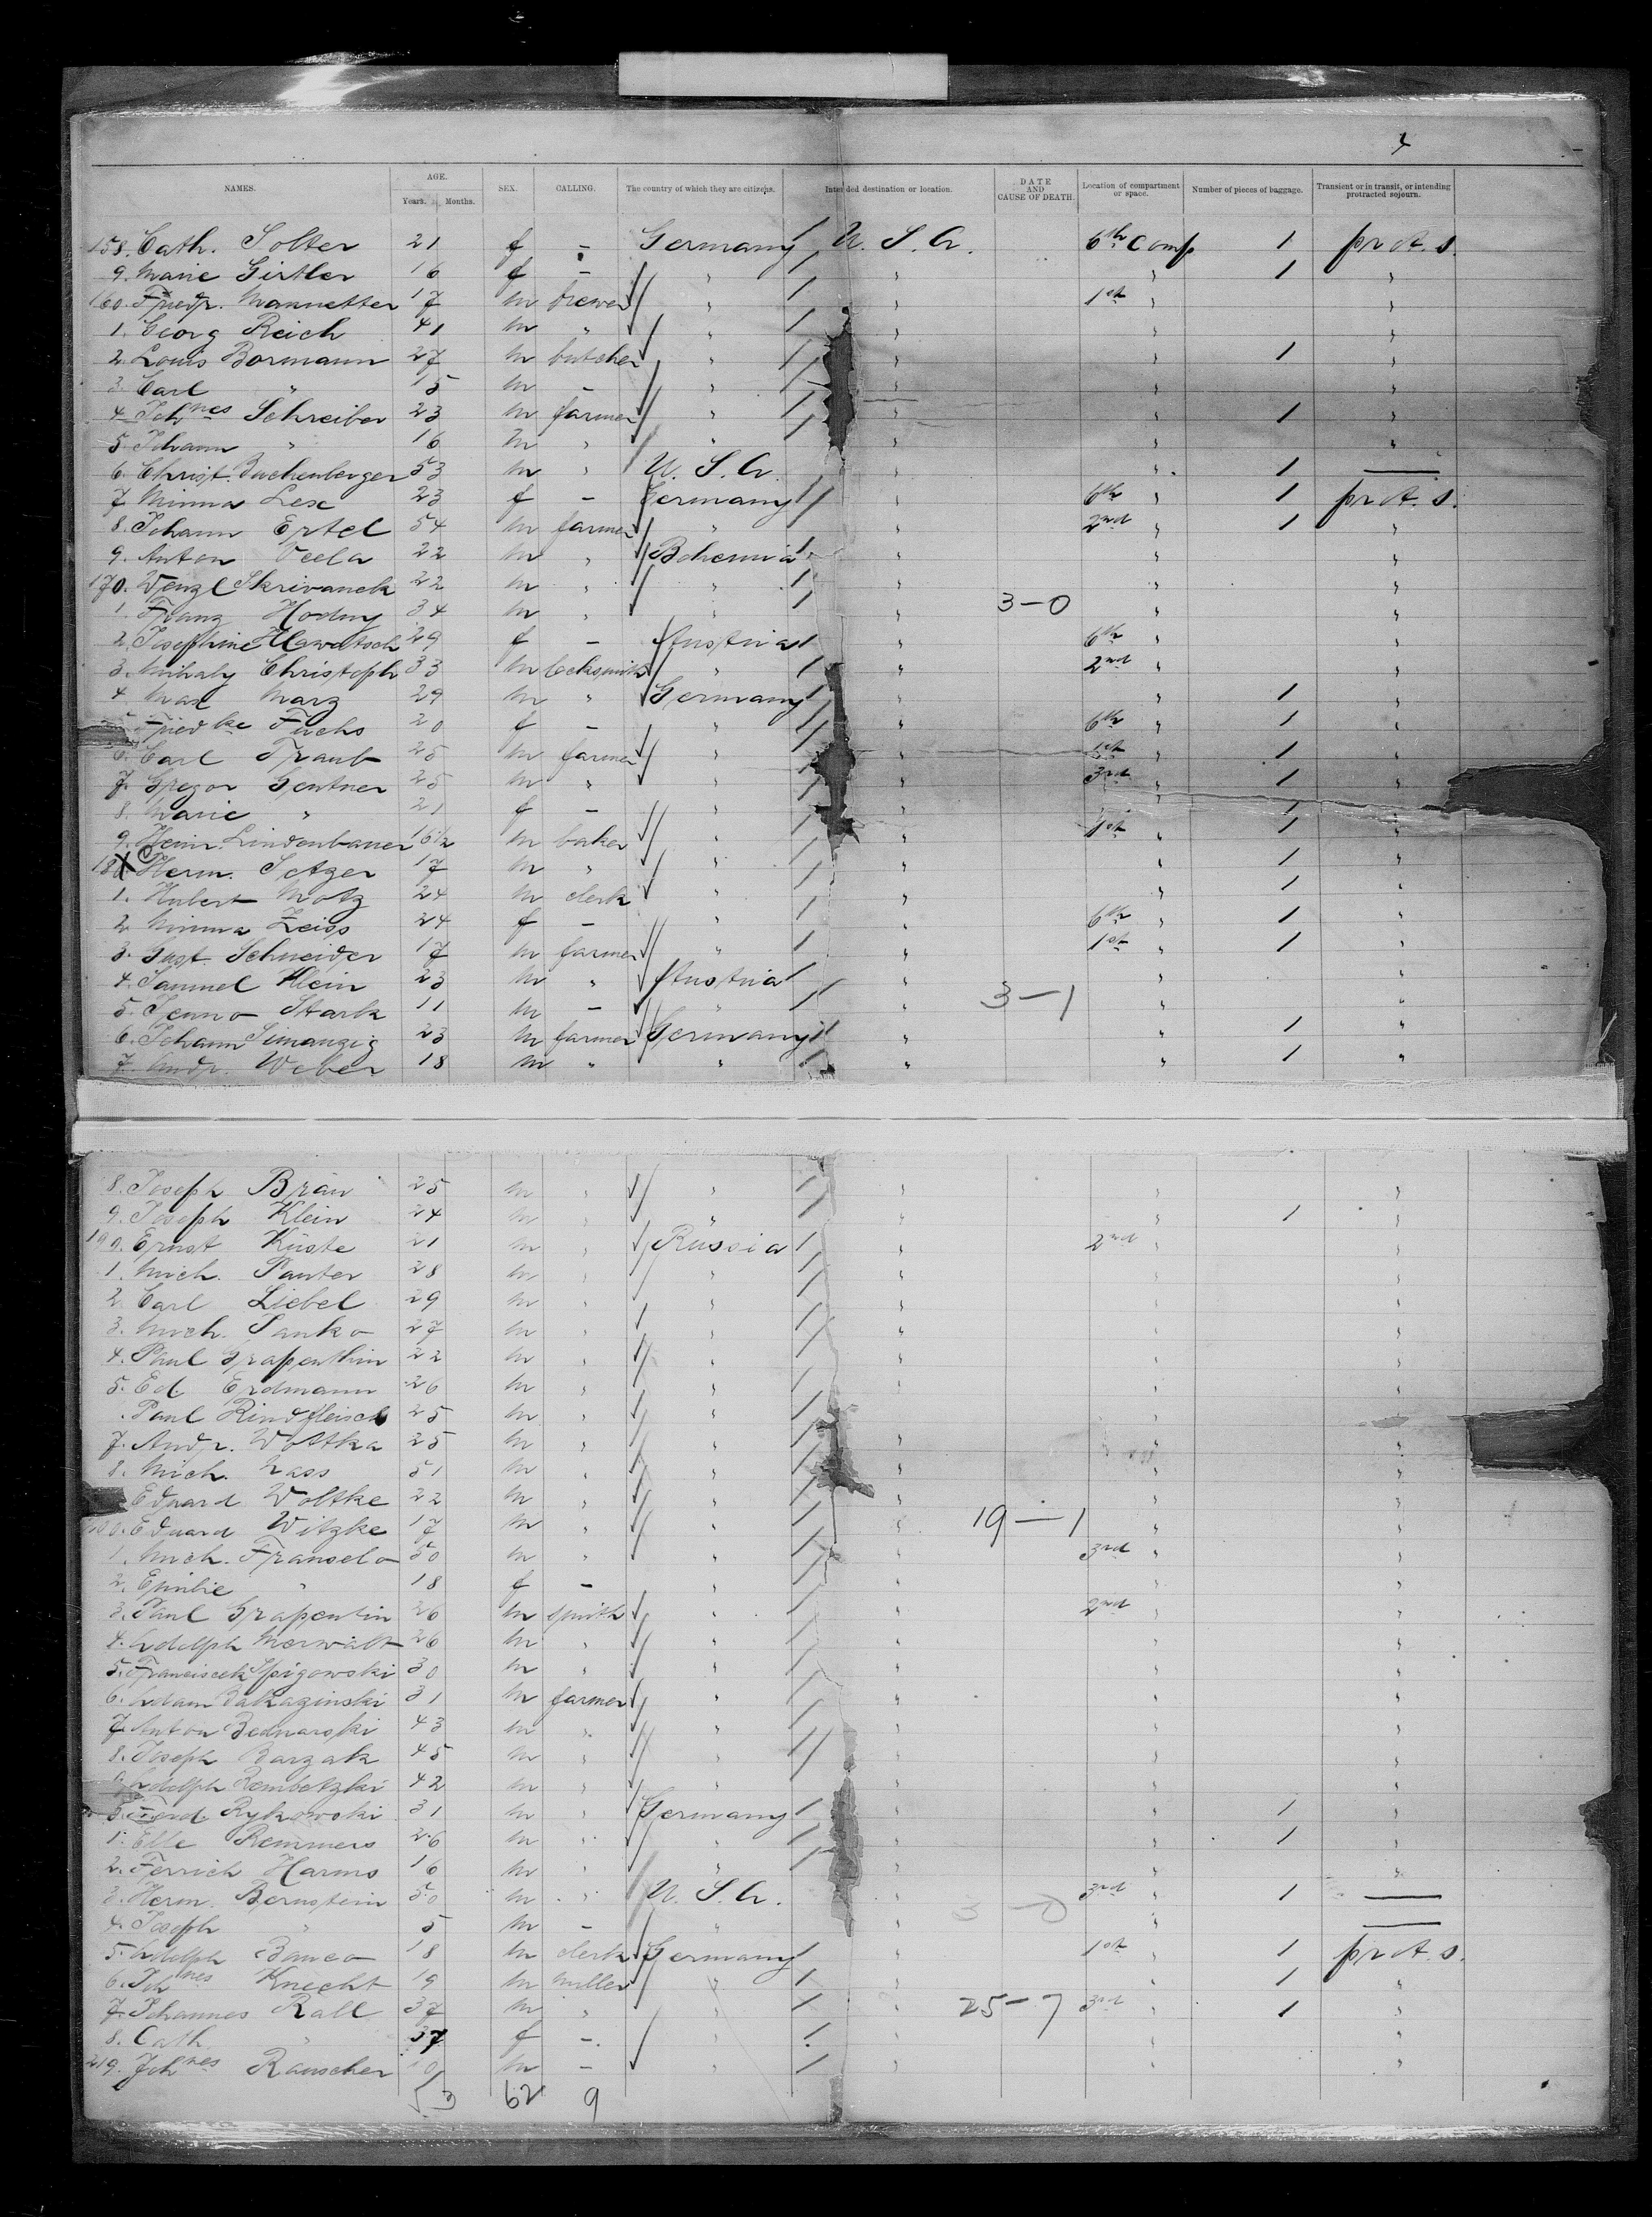 4
NAMES. AGE. Years. Months. SEX. CALLING. The country of which they are citizens. Intended destination or location. DATE AND CAUSE OF DEATH. Location of compartment or space. Number of pieces of baggage. Transient or in transit, or intending protracted sojourn.
158. Cath. Solter 21 f - Germany U. S. A. 6th Comp 1 prot. s.
9. Marie Girtler 16 f - " " " 1 "
160. Friedr. Mannetter 17 m brewer " " 1st " "
1. Georg Reich 41 m " " " " "
2. Louis Bormann 27 m butcher " " " 1 "
3. Carl " 15 m - " " " "
4. Johnes Schreiber 23 m farmer " " " 1 "
5. Johann " 16 m " " " " "
6. Christ. Buchenberger 53 m " U. S. A. " " 1 —
7. Minna Lex 23 f - Germany " 6th " 1 prot. s.
8. Johann Ertel 54 m farmer " " 2nd " 1 "
9. Anton Veela 22 m " Bohemia " " "
170. Wenzl Skrivanek 22 m " " " " "
1. Franz Hodny 34 m " " " 3-0 " "
2. Josephine Hawatsch 29 f - Austria " 6th " "
3. Mihaly Christoph 33 m locksmith " " 2nd " "
4. Max Marz 29 m " Germany " " 1 "
Friedke Fuchs 20 f - " " 6th " 1 "
6. Carl Traub 25 m farmer " " 1st " 1 "
7. Gregor Gentner 25 m " " " 3rd " 1 "
8. Marie " 21 f - " " " 1 "
9. Heinr. Lindenbauer 16½ m baker " " 1st " 1 "
180. Herm. Setzer 17 m " " " " 1 "
1. Hubert Motz 24 m clerk " " " 1 "
2. Minna Zeiss 24 f - " " 6th " 1 "
3. Gust. Schneider 17 m farmer " " 1st " 1 "
4. Samuel Klein 23 m " Austria " " "
5. Jenno Stark 11 m - " " 3-1 " "
6. Johann Simanzig 23 m farmer Germany " " 1 "
7. Andr. Weber 18 m " " " " 1 "
8. Joseph Bräu 25 m " " " " "
9. Joseph Klein 24 m " " " " 1 "
190. Ernst Küste 21 m " Russia " 2nd " "
1. Mich. Panter 28 m " " " " "
2. Carl Liebel 29 m " " " " "
3. Mich. Panko 27 m " " " " "
4. Paul Grapenthin 22 m " " " " "
5. Ed. Erdmann 26 m " " " " "
Paul Rindfleisch 25 m " " " " "
7. Andr. Wottka 25 m " " " " "
8. Mich. Nass 51 m " " " " "
Eduard Woltke 22 m " " " " "
Eduard Witzke 17 m " " " 19-1 " "
1. Mich. Franselo 50 m " " " 3rd " "
2. Emilie " 18 f - " " " "
3. Paul Grapentin 26 m smith " " 2nd " "
4. Adolph Merwalt 26 m " " " " "
5. Franciscek Spigowski 30 m " " " " "
6. Adam Bakazinski 31 m farmer " " " "
7. Anton Bednarski 43 m " " " " "
8. Joseph Barzak 45 m " " " " "
Adolph Rembetzki 42 m " " " " "
Ferd. Rykowski 31 m " Germany " " 1 "
1. Elle Remmers 26 m " " " " 1 "
2. Ferrich Harms 16 m " " " " "
3. Herm. Bernstein 50 m " U. S. A. " 3rd " 1 —
4. Joseph " 5 m - " " 3-0 " —
5. Adolph Banco 18 m clerk Germany " 1st " 1 prot. s.
6. Johnes Knecht 19 m miller " " " 1 "
7. Johannes Rall 37 m " " " 25-7 3rd " 1 "
8. Cath. " 37 f - " " " "
219. Johnes Rauscher m - " " " "
53 62 9